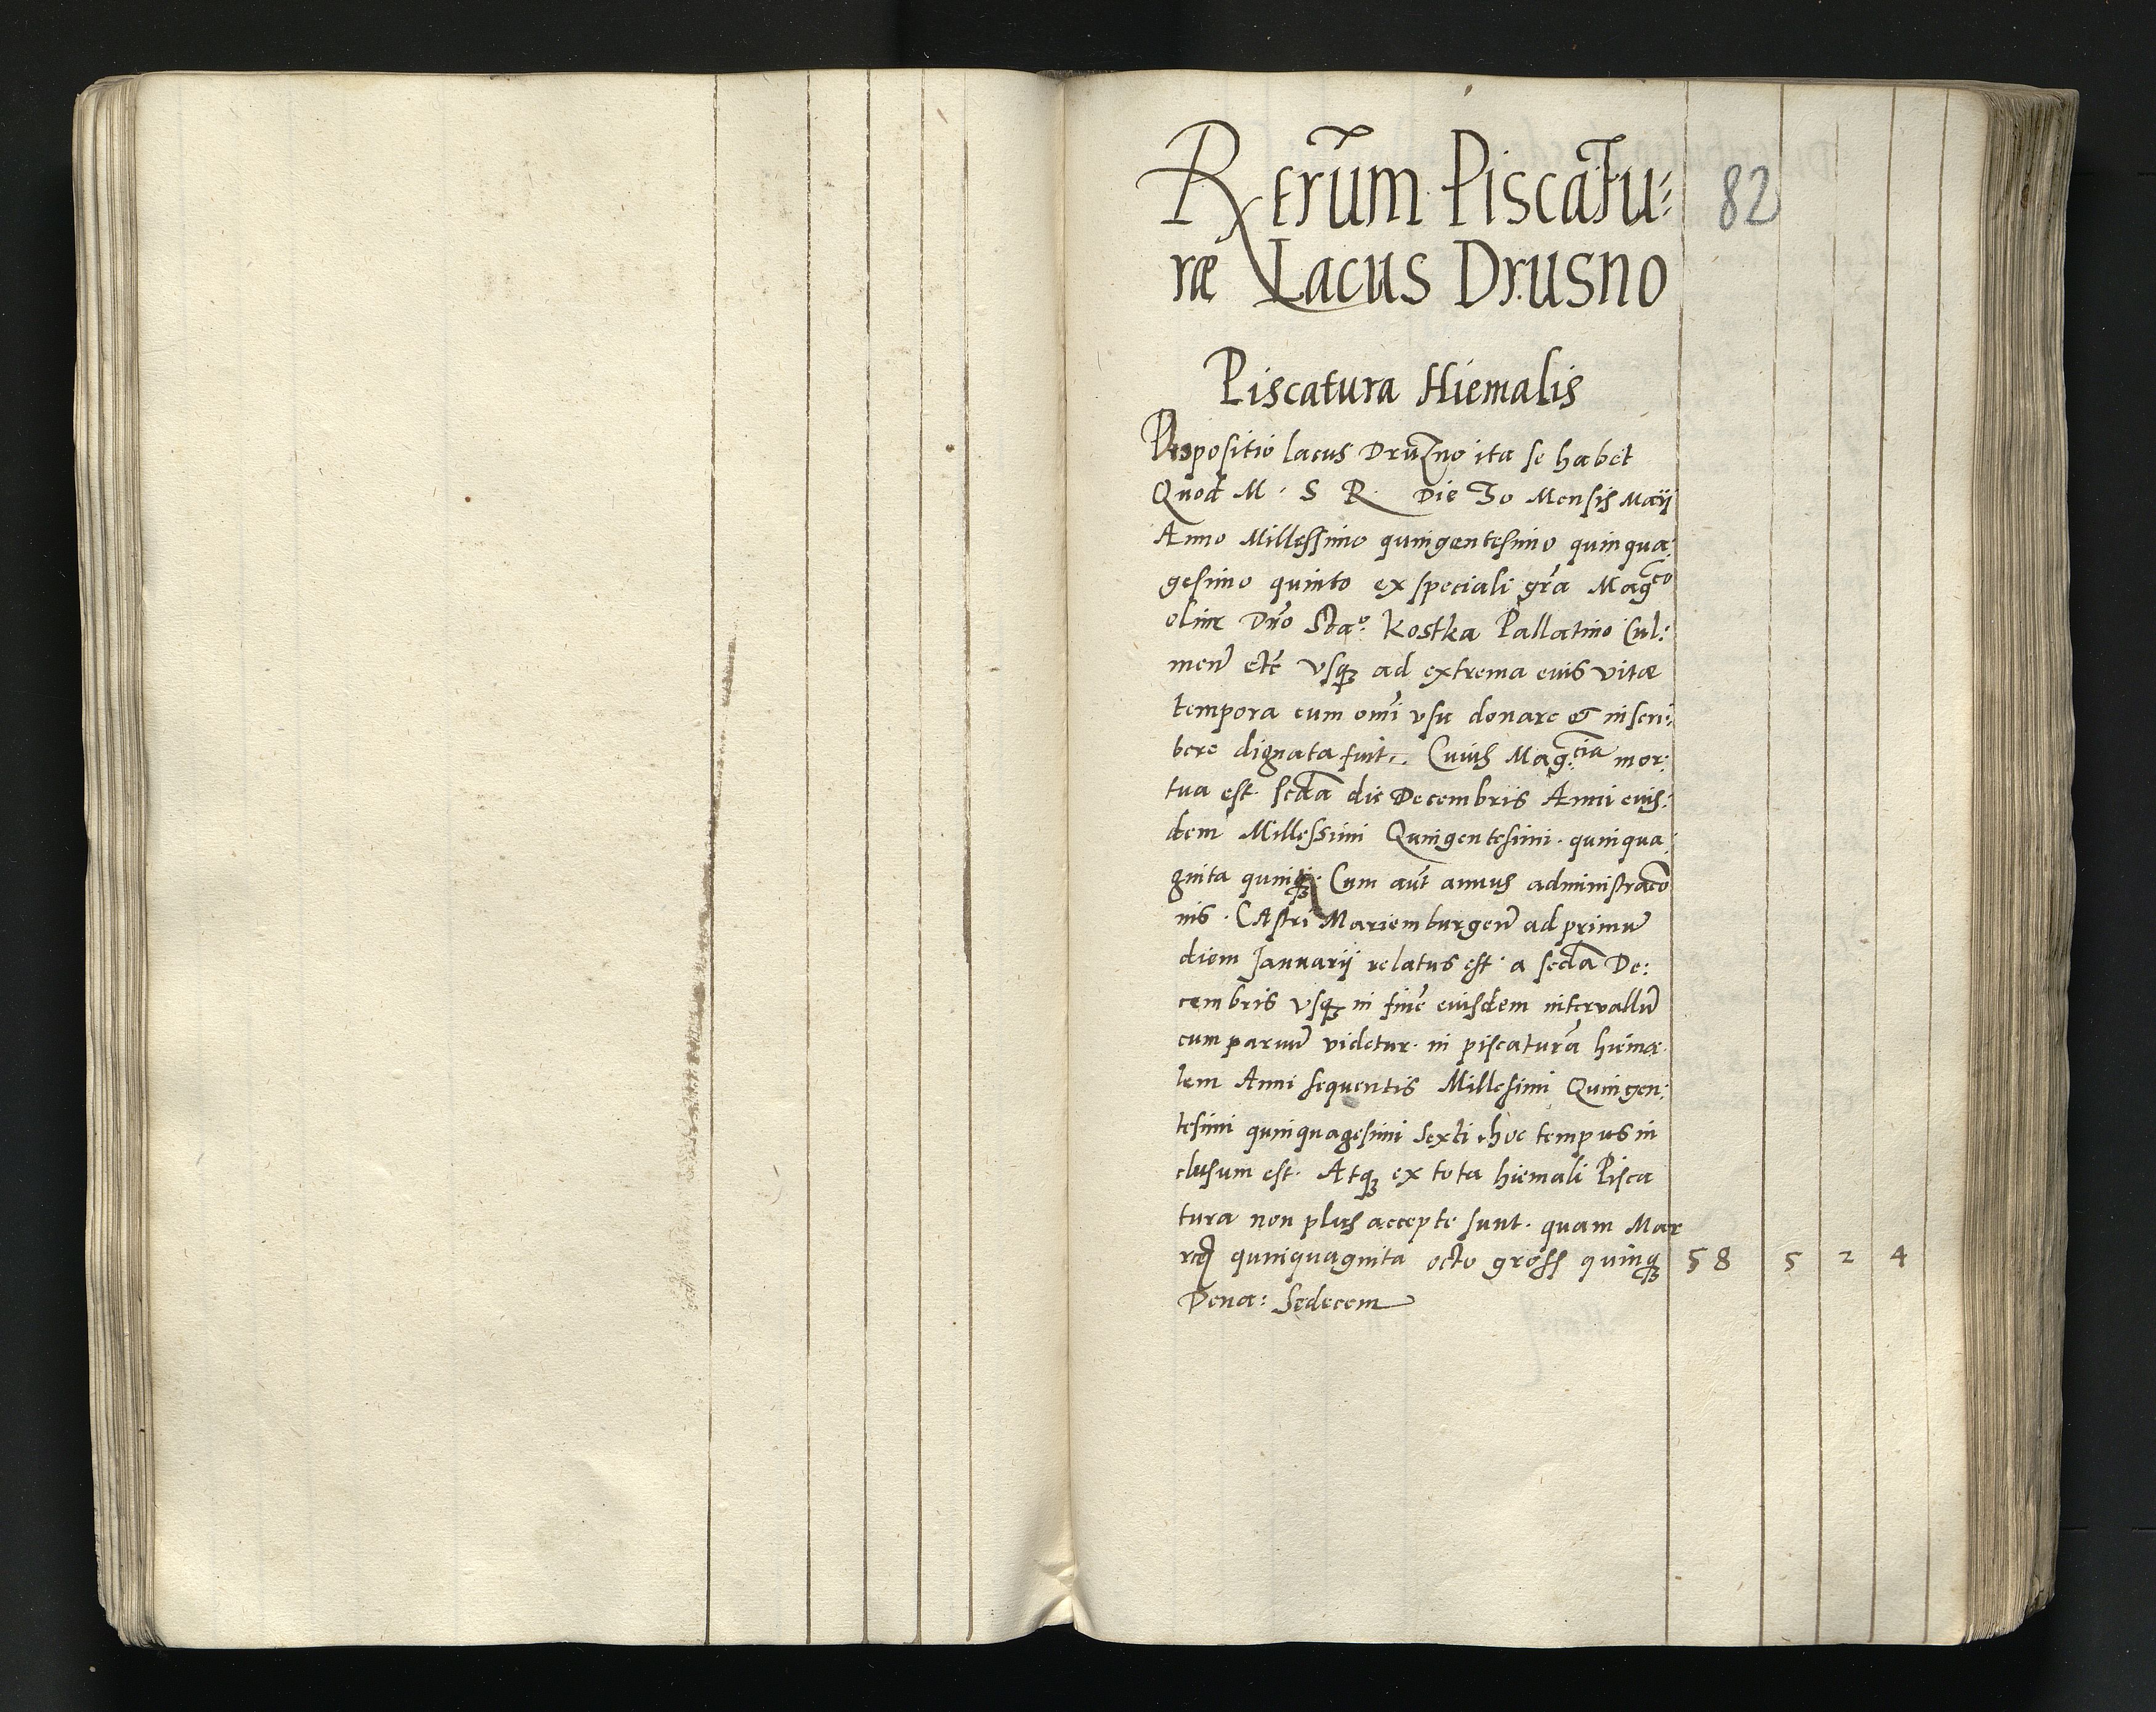 Rerūm Piscatu⸗
82
ræ Lacus Drusno
Piscatura Hiemalis
Dispositio lacus Druzno ita se habet
Quod M. S R. Die 30 Mensis Maij
Anno Millessimo quingentesimo quinqua:
gesimo quinto ex speciali gr̄a Mag:co
olim Dn̄o Sta°: Kostka Pallatino Cul:
men̄ etc̄ vsqꝫ ad extrema euis vitæ
tempora cum om̄i vsu donare et inscri:
bere dignata fuit. Cuius Mag:cia mor:
tua est. scd̄a die Decembris Anni euis:
dem Millessimi Quingentesimi. quinqua
ginta quinqꝫ. Cum aūt annus administracō
nis. CAstri Mariemburgen̄ ad primū
diem Januarij relatus est. a secd̄a De:
cembris vsqꝫ in finē euisdem intervallū
cum paruū videtur. in piscaturā hiema
lem Anni sequentis Millesimi Quingen:
tesimi quinquagesimi Sexti hoc tempus in
clusum est. Atqꝫ ex tota hiemali Pisca
tura non plus accepte sunt. quam Mar
rcę quinquaginta octo gross quinqꝫ 58 5 2 4
Dena: Sedecem